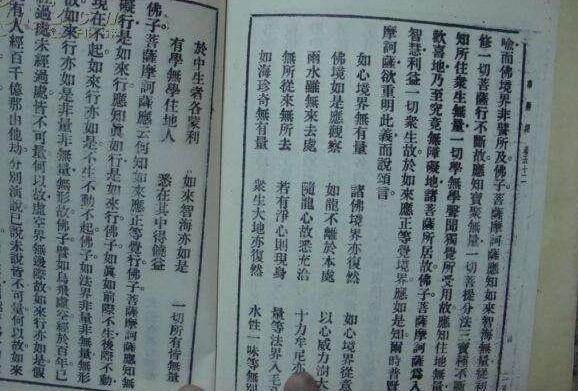 華嚴經 卷五十二
喻而佛境界非譬所及佛子菩薩摩訶薩應知如來智海無量從
修一切菩薩行不斷故應知寶聚無量一切菩提分法三寶種不斷
知所住眾生無量一切學無學聲聞獨覺所受用故應知住地無量
歡喜地乃至究竟無障礙地諸菩薩所居故佛子菩薩摩訶薩為入
智慧利益一切眾生故於如來應正等覺境界應如是知爾時普賢
摩訶薩欲重明此義而說頌言
如心境界無有量 諸佛境界亦復然 如心境界從意
佛境如是應觀察 如龍不離於本處 以心威力澍大
雨水雖無來去處 隨龍心故悉充洽 十力牟尼亦
無所從來無所去 若有淨心則現身 量等法界入毛
如海珍奇無有量 眾生大地亦復然 水性一味等無
於中生者各蒙利 如來智海亦如是 一切所有皆無量
有學無學住地人 悉在其中得饒益
佛子菩薩摩訶薩應云何知如來應正等覺行佛子菩薩摩訶薩應知無
礙行是如來行應知真如行是如來行佛子如真如前際不生後際不動
現在不起如來行亦如是不生不動不起佛子如法界非量非無量無形
故如來行亦如是非量非無量無形故佛子譬如鳥飛虛空經於百年已
經過處未經過處皆不可量何以故虛空界無邊際故如來行亦如是假
有人經百千億那由他劫分別演說已說未說皆不可量何以故如來